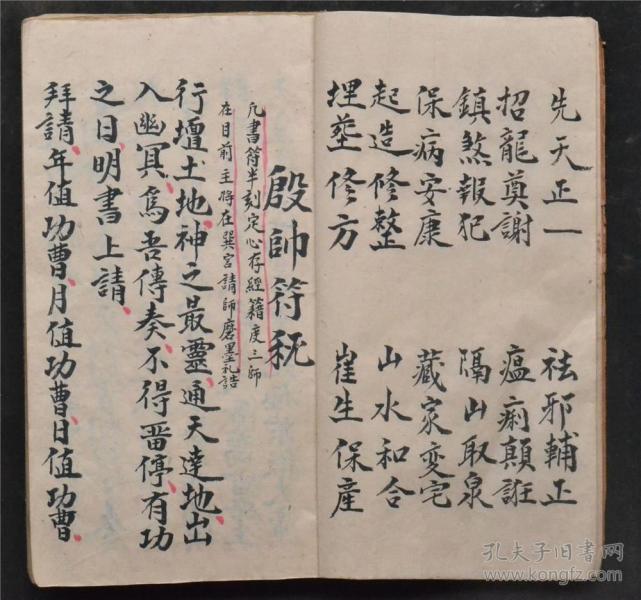 先天正一 祛邪輔正
招龍奠謝 瘟痢顛誑
鎮煞報犯 隔山取泉
保病安康 藏家变宅
起造修整 山水和合
埋塟修方 崔生保產
殷帥符秘
凢書符半刻定心存經籍度三师
在目前主將在巽宮請師磨墨礼誥
行壇土地、神之最靈、通天達地、出
入幽冥、為吾傳奏、不得畱停、有功
之日、明書上請、
拜請、年值功曹、月值功曹、日值功曹、
孔夫子旧书网
www.kongfz.com